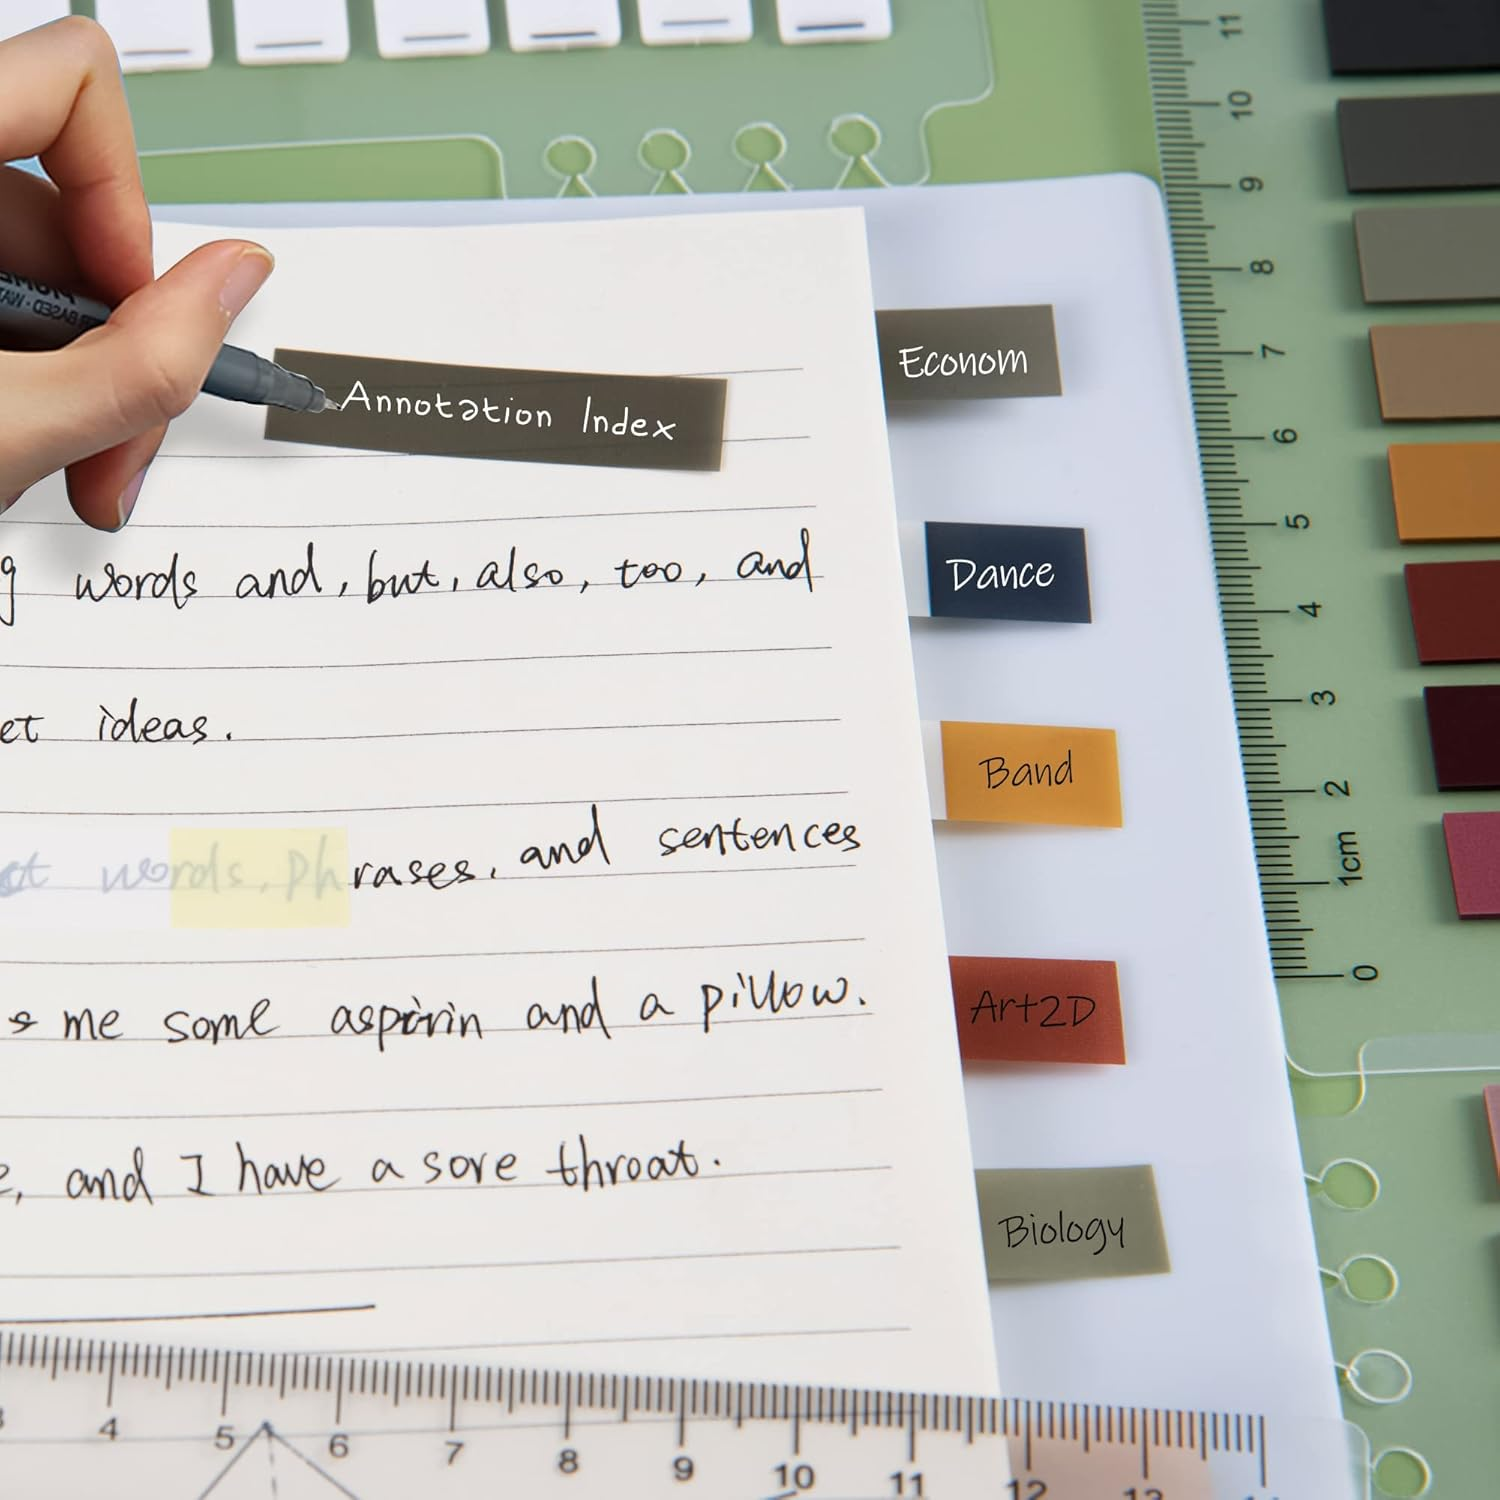 Annotation Index
g words and, but, also, too, and
et ideas.
ct words, phrases, and sentences
me some aspirin and a pillow.
e, and I have a sore throat.
Econom
Dance
Band
Art2D
Biology
11
10
9
8
7
6
5
4
3
2
1cm
0
4 5 6 7 8 9 10 11 12 13